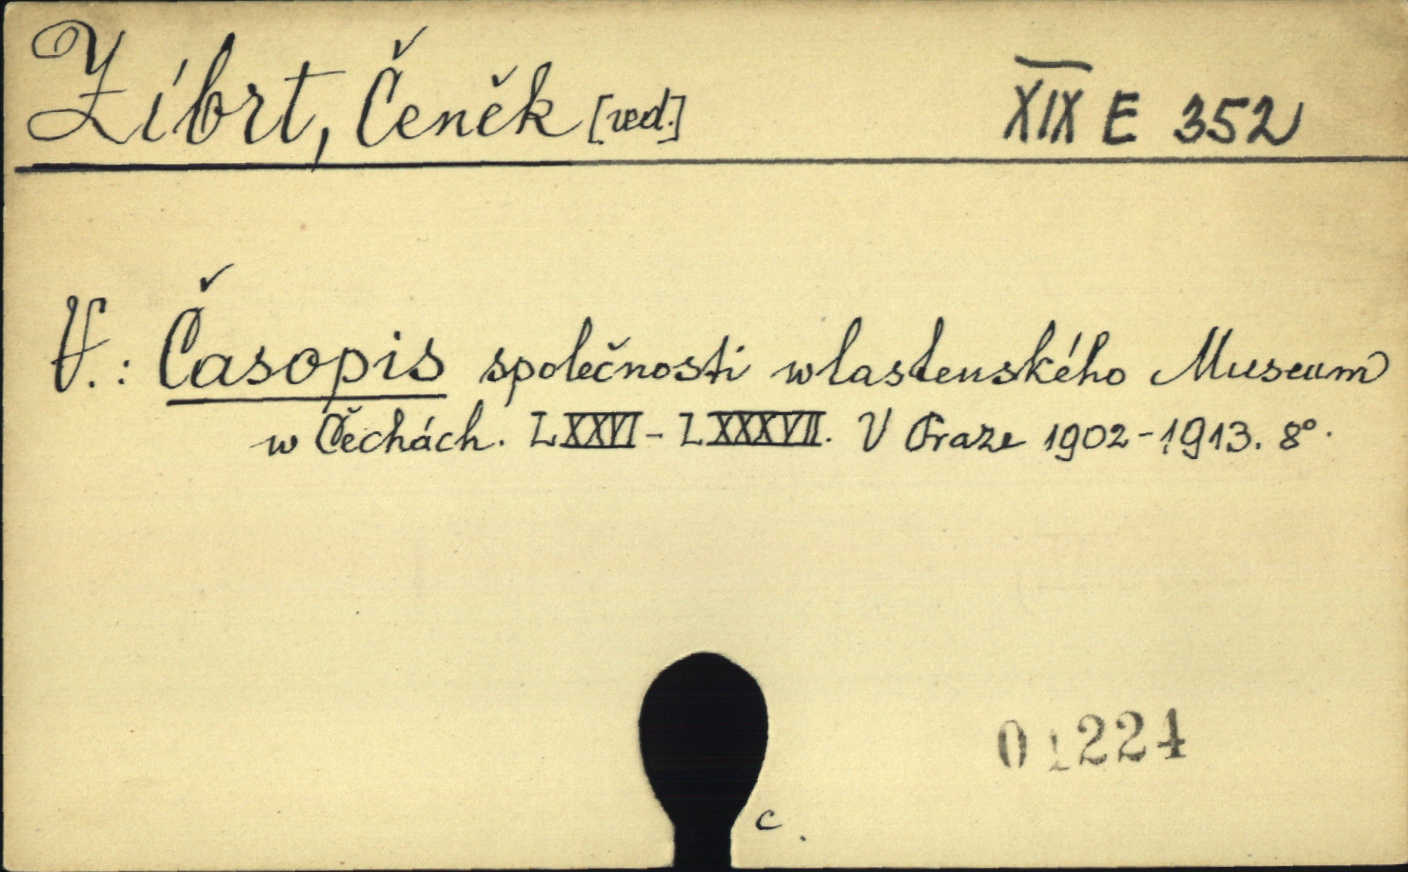 Zíbrt, Čeněk [red.] XIX E 352
V.: Časopis společnosti wlastenského Museum
w Čechách. LXXVI - LXXXVII. V Praze 1902-1913. 8°.
01224
c.